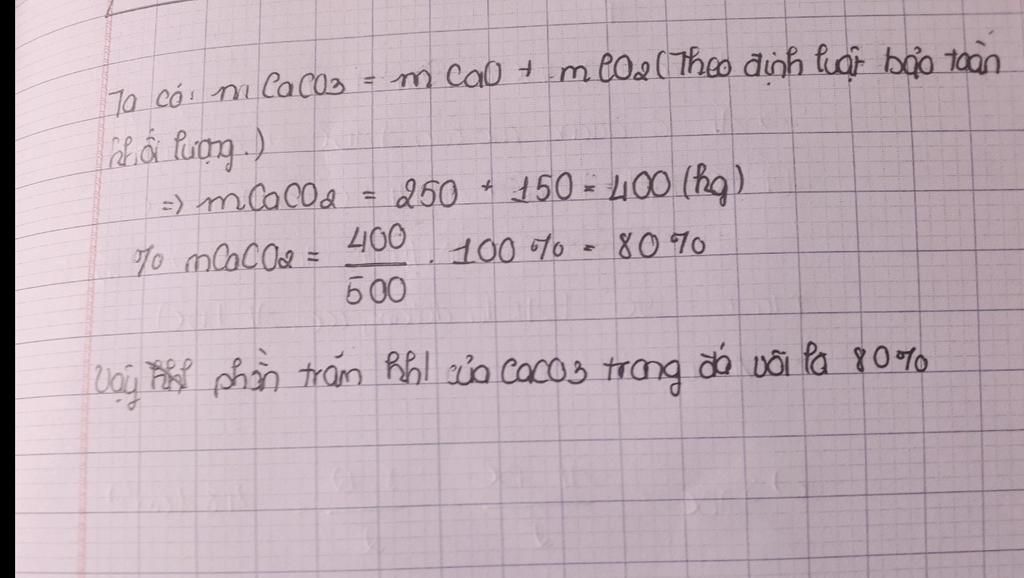 Ta có: mCaCO3 = mCaO + mCO2 (Theo định luật bảo toàn
khối lượng.)
=> mCaCO2 = 250 + 150 = 400 (kg)
% mCaCO2 = 400/500 . 100% = 80%
Vậy phần trăm khl của CaCO3 trong đá vôi là 80%